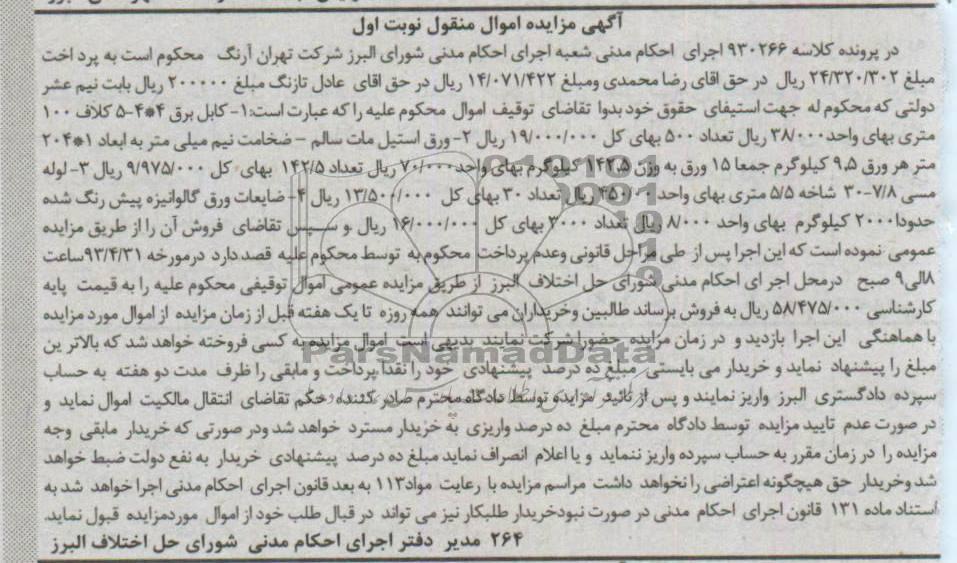 آگهی مزایده اموال منقول نوبت اول
در پرونده کلاسه ۹۳۰۲۶۶ اجرای احکام مدنی شعبه اجرای احکام مدنی شورای البرز شرکت تهران آرنگ محکوم است به پرداخت
مبلغ ۲۴/۳۲۰/۳۰۲ ریال در حق اقای رضا محمدی ومبلغ ۱۴/۰۷۱/۴۲۲ ریال در حق اقای عادل تازنگ مبلغ ۲۰۰۰۰۰ ریال بابت نیم عشر
دولتی که محکوم له جهت استیفای حقوق خود بدوا تقاضای توقیف اموال محکوم علیه را که عبارت است:۱- کابل برق ۴*۴-۵ کلاف ۱۰۰
متری بهای واحد۳۸/۰۰۰ ریال تعداد ۵۰۰ بهای کل ۱۹/۰۰۰/۰۰۰ ریال ۲-ورق استیل مات سالم – ضخامت نیم میلی متر به ابعاد ۱*۲۰۴
متر هر ورق ۹,۵ کیلوگرم جمعا ۱۵ ورق به وزن ۱۴۲,۵ کیلوگرم بهای واحد ۷۰/۰۰۰ ریال تعداد ۱۴۲/۵ بهای کل ۹/۹۷۵/۰۰۰ ریال ۳-لوله
مسی ۷/۸-۳۰ شاخه ۵/۵ متری بهای واحد ریال تعداد ۳۰ بهای کل ۱۳/۵۰۰/۰۰۰ ریال ۴- ضایعات ورق گالوانیزه پیش رنگ شده
حدودا۲۰۰۰ کیلوگرم بهای واحد ۸/۰۰۰ ریال تعداد ۲۰۰۰ بهای کل ۱۶/۰۰۰/۰۰۰ ریال و سپس تقاضای فروش آن را از طریق مزایده
عمومی نموده است که این اجرا پس از طی مراحل قانونی وعدم پرداخت محکوم به توسط محکوم علیه قصد دارد درمورخه ۹۳/۴/۳۱ساعت
۸الی۹ صبح درمحل اجر ای احکام مدنی شورای حل اختلاف البرز از طریق مزایده عمومی اموال توقیفی محکوم علیه را به قیمت پایه
کارشناسی ۵۸/۴۷۵/۰۰۰ ریال به فروش برساند طالبین وخریداران می توانند همه روزه تا یک هفته قبل از زمان مزایده از اموال مورد مزایده
با هماهنگی این اجرا بازدید و در زمان مزایده حضورا شرکت نمایند بدیهی است اموال مزایده به کسی فروخته خواهد شد که بالاتر ین
مبلغ را پیشنهاد نماید و خریدار می بایستی مبلغ ده درصد پیشنهادی خود را نقدا پرداخت و مابقی را ظرف مدت دو هفته به حساب
سپرده دادگستری البرز واریز نمایند و پس از تائید مزایده توسط دادگاه محترم صادر کننده حکم تقاضای انتقال مالکیت اموال نماید و
در صورت عدم تایید مزایده توسط دادگاه محترم مبلغ ده درصد واریزی به خریدار مسترد خواهد شد ودر صورتی که خریدار مابقی وجه
مزایده را در زمان مقرر به حساب سپرده واریز ننماید و یا اعلام انصراف نماید مبلغ ده درصد پیشنهادی خریدار به نفع دولت ضبط خواهد
شد وخریدار حق هیچگونه اعتراضی را نخواهد داشت مراسم مزایده با رعایت مواد۱۱۳ به بعد قانون اجرای احکام مدنی اجرا خواهد شد به
استناد ماده ۱۳۱ قانون اجرای احکام مدنی در صورت نبودخریدار طلبکار نیز می تواند در قبال طلب خود از اموال موردمزایده قبول نماید.
۲۶۴ مدیر دفتر اجرای احکام مدنی شورای حل اختلاف البرز
ParsNamadData